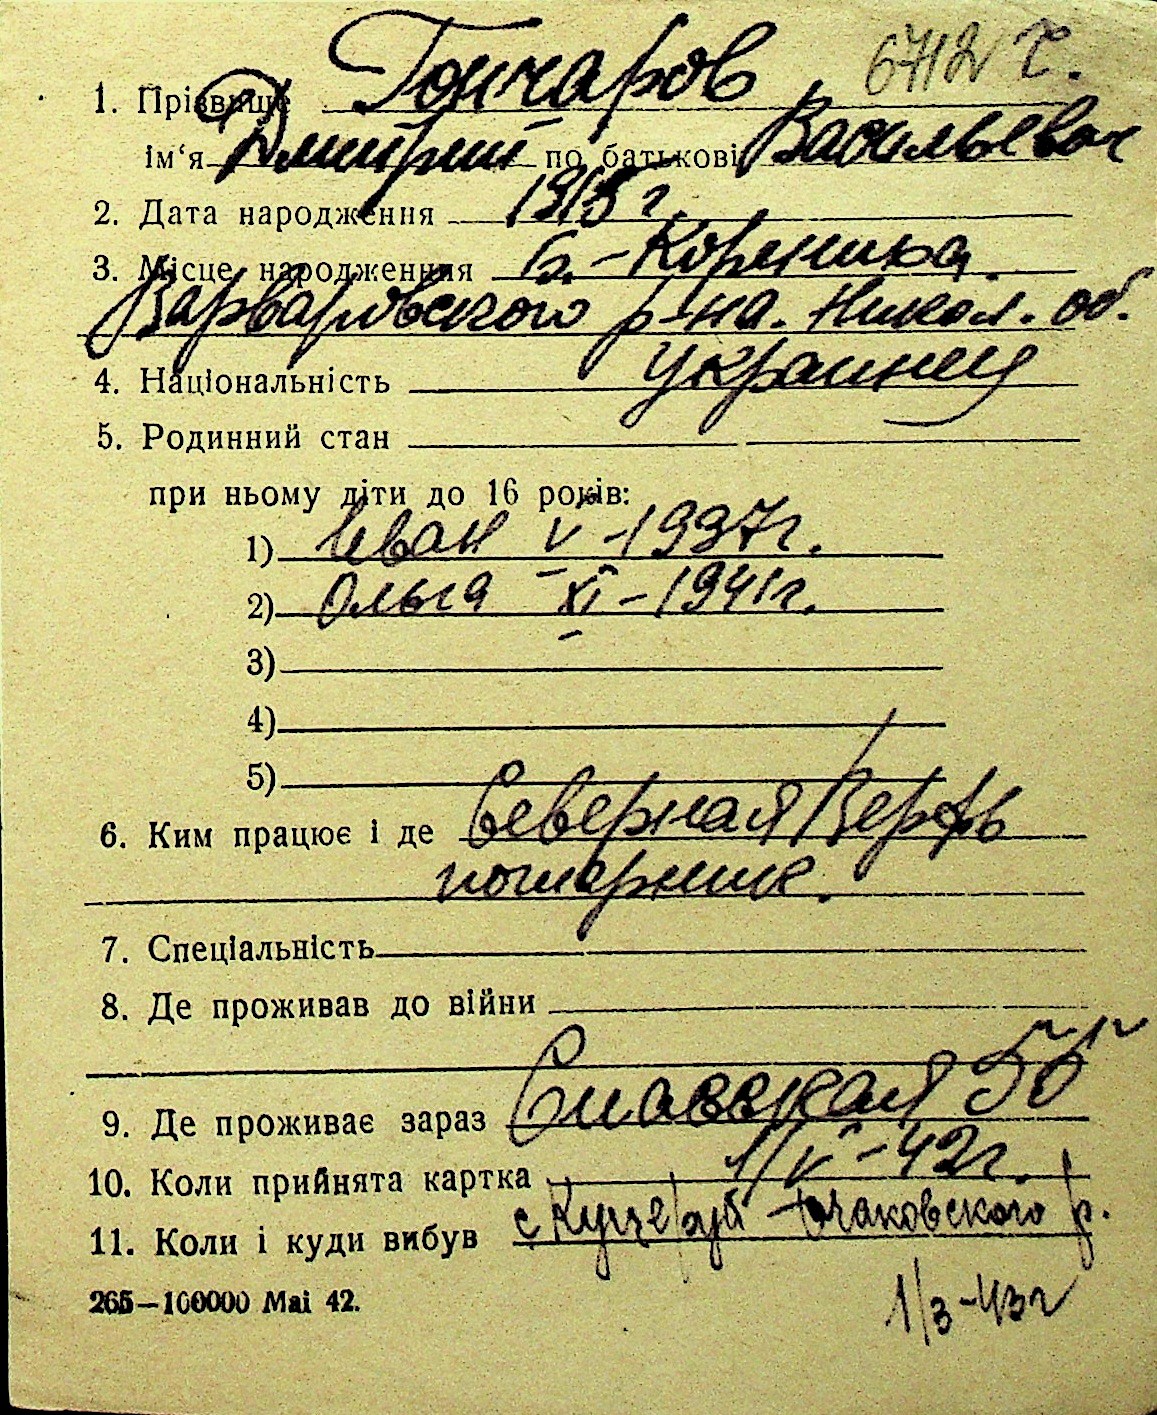 6712 Г.
1. Прізвище Гончаров
ім‘я Дмитрий по батькові Васильевич
2. Дата народження 1915 г
3. Місце народження Б.-Кореника.
Варваровского р-на. Никол. об.
4. Національність украинец
5. Родинний стан
при ньому діти до 16 років:
1) Иван V-1937г.
2) Ольга XI-1941г.
3)
4)
5)
6. Ким працює і де Северная Верфь
7. Спеціальність
8. Де проживав до війни
9. Де проживає зараз Спасская
10. Коли прийнята картка 1/V-42г.
11. Коли і куди вибув с Куцеруб Очаковского р.
265—100000 Mai 42.
1/3-43г